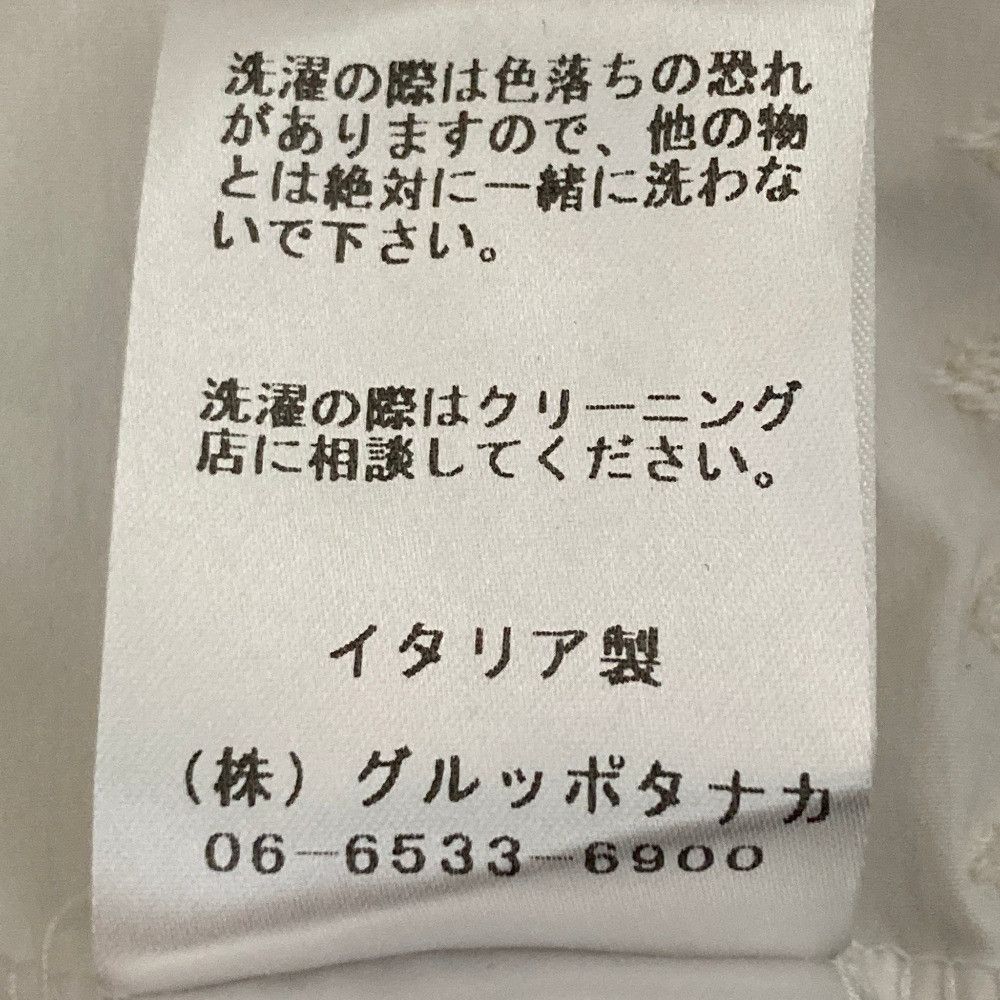 洗濯の際は色落ちの恐れ
がありますので、他の物
とは絶対に一緒に洗わな
いで下さい。
洗濯の際はクリーニング
店に相談してください。
イタリア製
(株)グルッポタナカ
06-6533-6900